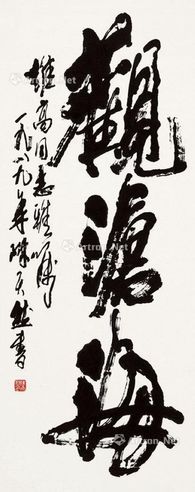 觀滄海
雄高同志雅嘱
一九八九年 陈天然书